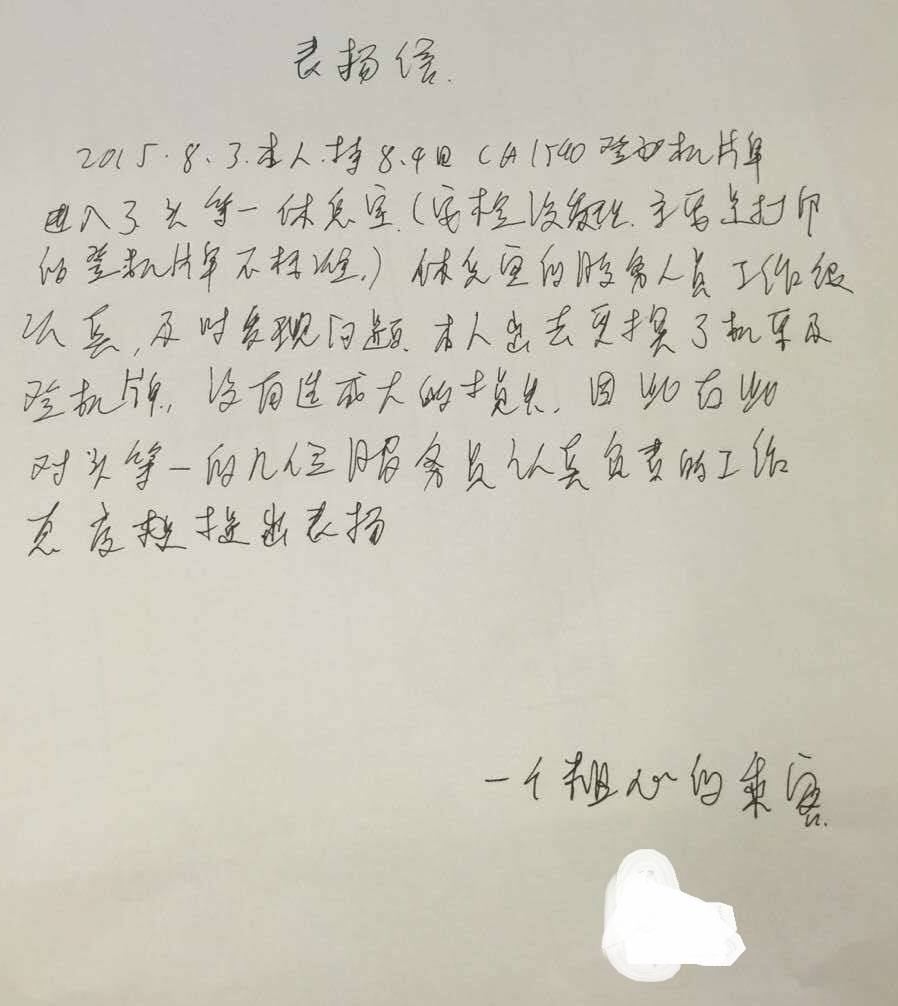 表扬信.
2015.8.3.本人持8.4日CA1540登机牌
进入了头等一休息室.(安检没发现.主要是打印
的登机牌不标准.)休息室的服务人员工作很
认真,及时发现问题.本人出去更换了机票及
登机牌,没有造成大的损失.因此在此
对头等一的几位服务员认真负责的工作
态度提出表扬
一个粗心的乘客.